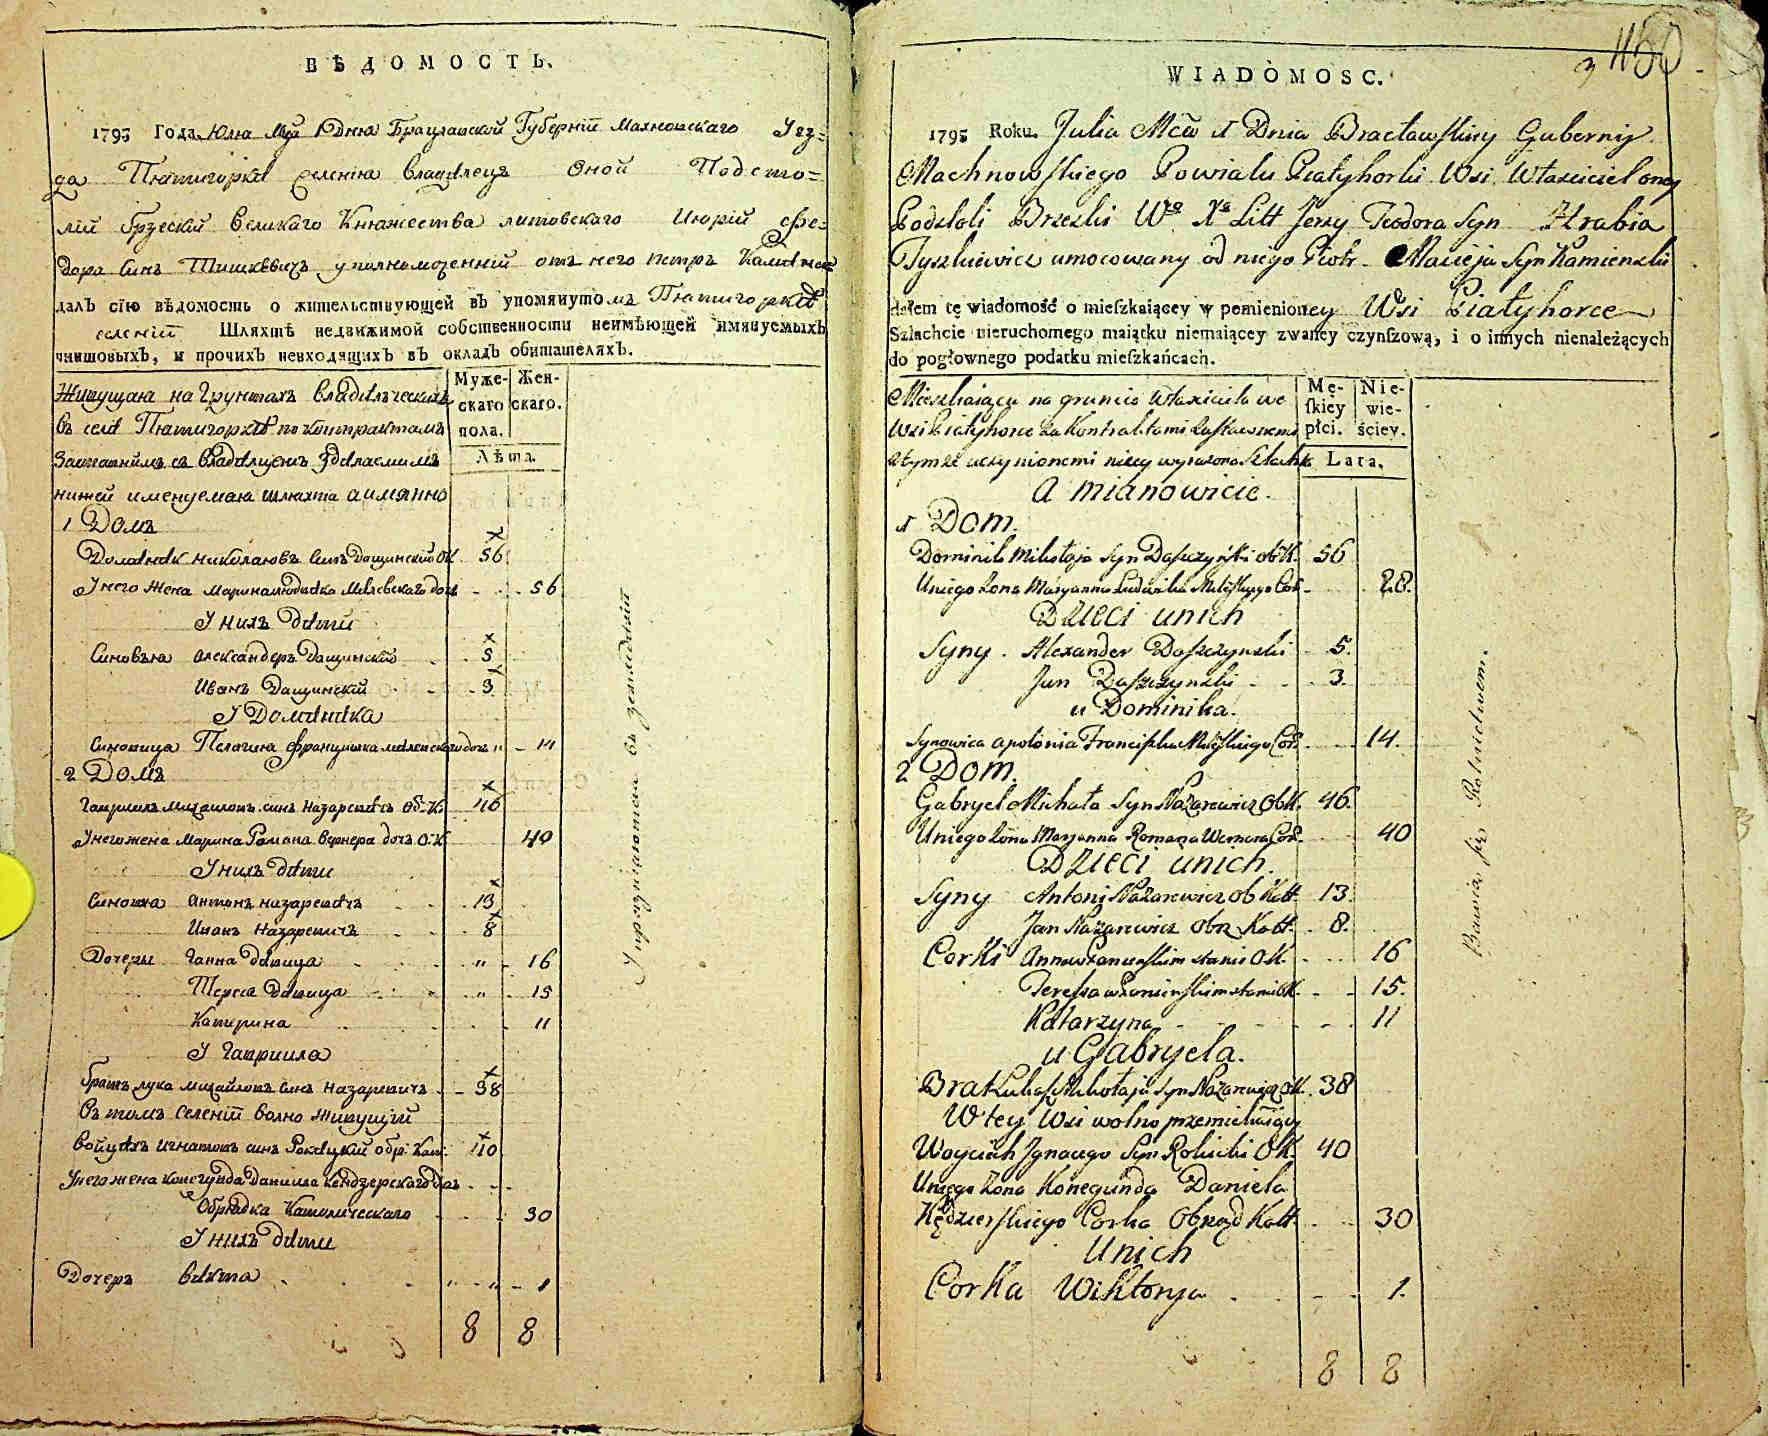 ВѢДОМОСТЬ.
1795 Года Юля Мца 1 Дня Брацлавской Губерніи Махновскаго Уез=
да Пятигорки селенія владелецъ оной Подсто=
лій Брзескій Великаго Княжества литовскаго Июрій Фе=
дора Синъ Тишкѣвичъ уполномоченній отъ него петръ
далъ сїю вѣдомость о жительствующей въ упомянутомъ Пятигорки
селеніи Шляхтѣ недвижимой собственности неимѣющей имянуемыхъ
чиншовыхъ, и прочихъ невходящихъ въ окладъ обитателяхъ.
Живущая на Грунтахъ Владѣлческихъ
въ селѣ Пятигоркѣ по контрактамъ
съ Владѣлцемъ
нижей именуемая шляхта а имянно
Муже- скаго пола.
Жен- скаго.
Лѣта.
1 Домъ
Доминикъ николаювъ Синъ Дащинскій О.К. 56
У него жена Мариана 56
У нихъ дѣти
Синовья Александеръ Дащинскій 5
Иванъ Дащинскій 3
У Доминика
Синовица Францишка 14
2 Домъ
Гаврилъ Михаиловъ синъ Назаревичъ Об. К. 46
У него жена Марина Романа Вернера дочъ О. К. 40
У нихъ дѣти
Синовья Антонъ Назаревичъ 13
Иванъ Назаревичъ 8
Дочери Ганна Дѣвица " 16
Тереса Дѣвица " 15
Катерина 11
У Гавриила
братъ лука михайловъ синъ Назаревичъ 38
Въ томъ селеніи волно живущій
Войцехъ Игнатовъ синъ обр: Кат. 40
У него жена Конегунда Даниила Кендзерскаго дочъ
Обрядка Католическаго 30
У нихъ дѣти
Дочеръ Викта " " 1
8 8
Упражняются въ земледѣліи
3 450
WIADOMOSC.
1795 Roku. Julia Mca 1 Dnia Bracławskiey Gubernij
Machnowskiego Powiatu Piatyhorki Wsi Właściciel oney
Podstoli Brzeski Wo Xa Litt Jerzy Teodora Syn Hrabia
Tyszkiewicz umocowany od niego Piotr Macieja Syn Kamienski
dałem tę wiadomość o mieſzkaiącey w pomienioney Wsi Piatyhorce
Szlachcie nieruchomego maiątku niemaiącey zwaney czynſzową, i o innych nienależących
do pogłownego podatku mieſzkańcach.
Mieszkaiąca na gruncie Właściciela we
Wsi Piatyhorce za Kontraktami
z tymże uczynionemi niżey wyrażona Szlachta
A mianowicie.
Mę- ſkiey płci.
Nie- wie- ściey.
Lata.
1 Dom.
Dominik Mikołaja Syn Daszczyński ob K. 56
U niego Zona Maryanna Ludwika Cor. 28.
Dzieci u nich
Syny. Alexander Daszczynski 5.
Jan Daszczynski 3.
u Dominika.
Synowica apolonia Franciszka Cor. 14.
2 Dom.
Gabryel Michała Syn Nazarewicz Ob K. 46.
U niego Zona Maryanna Romana Wernera Cor. 40
Dzieci u nich.
Syny Antoni Nazarewicz Ob Katt. 13.
Jan Nazarewicz Obr. Katt. 8.
Corki Anna w Panienskim stanie O K. 16
Teressa w Panienskim stanie O K. 15.
Katarzyna 11
u Gabryela.
Brat Łukasz Mikołaja Syn Nazarewicz O K. 38
W tey Wsi wolno przemieszkujący
Woyciech Jgnacego Syn Rolicki O K. 40
U niego Zona Konegunda Daniela
Kędzierskiego Corka Obrząd Katt. 30
U nich
Corka Wiktorya 1.
8 8
Bawią się Rolnictwem.